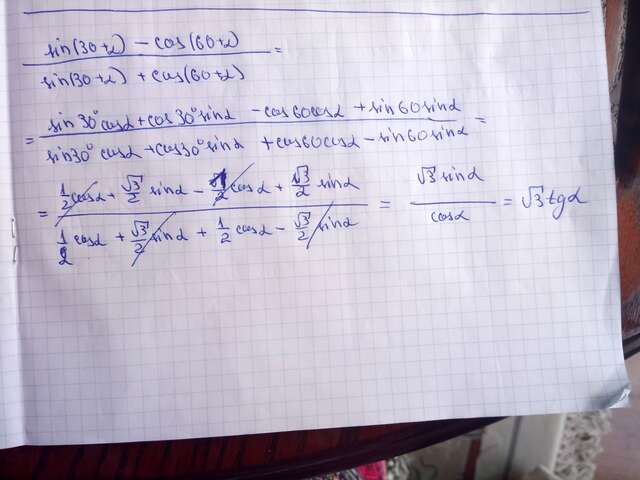 sin(30+α) - cos(60+α) / sin(30+α) + cos(60+α) =
= sin30°cosα + cos30°sinα - cos60cosα + sin60sinα / sin30°cosα + cos30°sinα + cos60cosα - sin60sinα =
= 1/2 cosα + √3/2 sinα - 1/2 cosα + √3/2 sinα / 1/2 cosα + √3/2 sinα + 1/2 cosα - √3/2 sinα = √3 sinα / cosα = √3 tgα